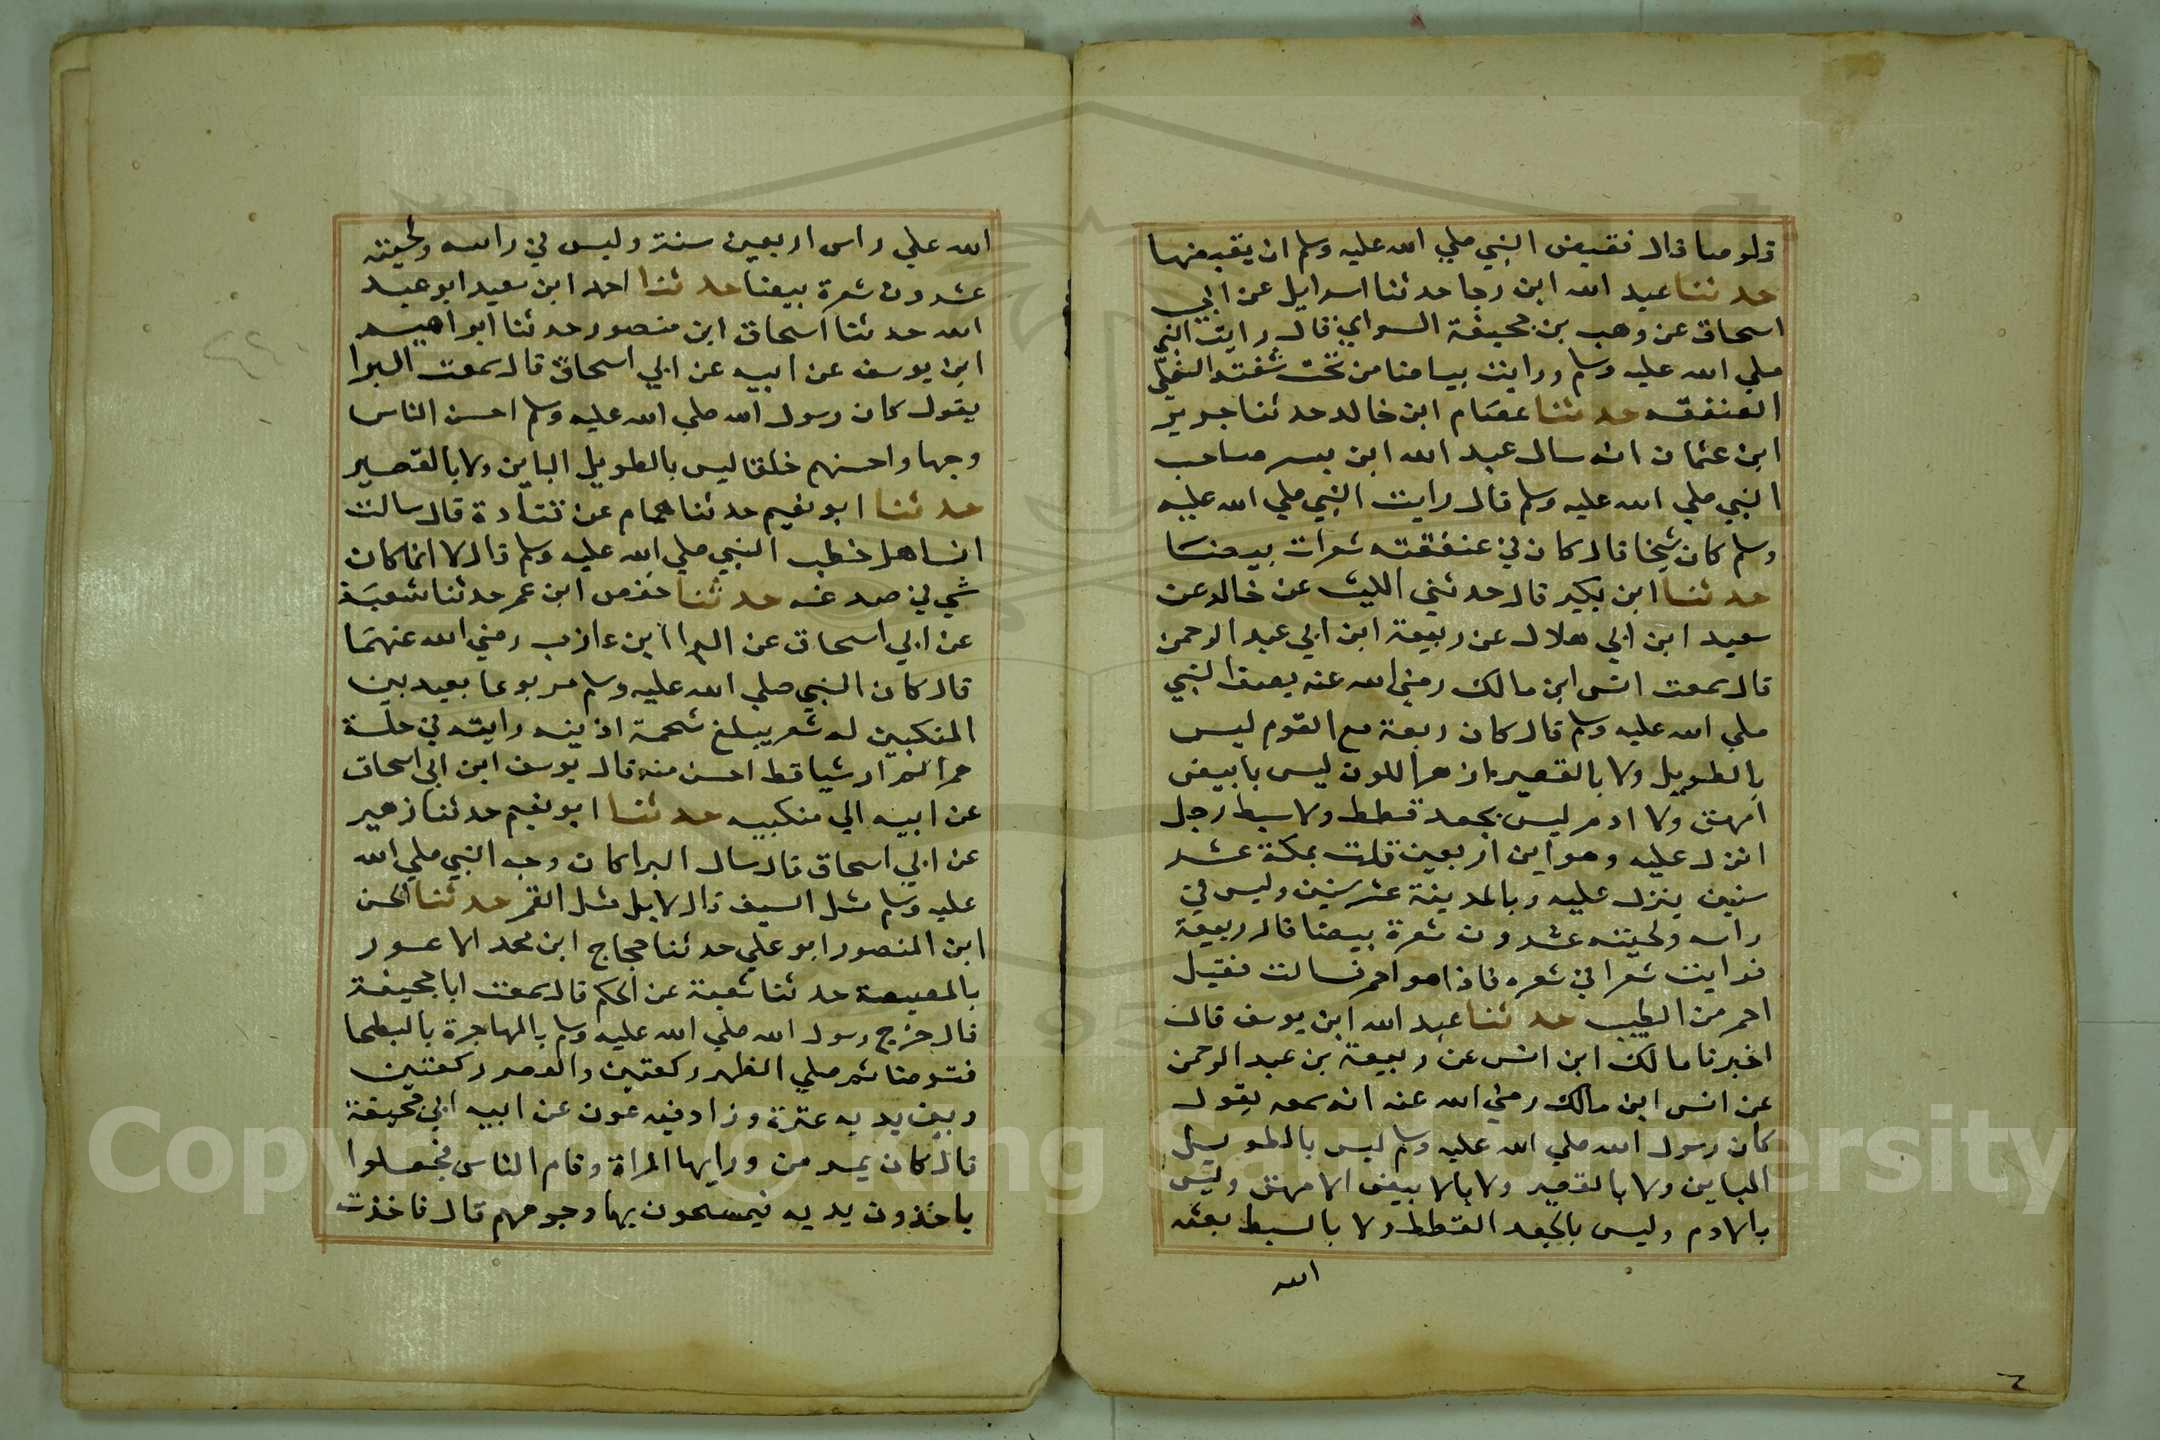 قلوصا قال فقبض النبي صلي الله عليه وسلم ان يقبضها
حدثنا عبد الله ابن رجا حدثنا اسرايل عن ابي
اسحاق عن وهب بن جحيفة السواي قال رايت النبي
صلي الله عليه وسلم ورايت بياضا من تحت شفته السفلي
العنفقه حدثنا عصام ابن خالد حدثنا جرير
ابن عثمان انه سال عبد الله ابن بسر صاحب
النبي صلي الله عليه وسلم قال رايت النبي صلي الله عليه
وسلم كان شيخا قال كان في عنفقته شعرات بيضا
حدثنا ابن بكير قال حدثني الليث عن خالد عن
سعيد ابن ابي هلال عن ربيعة ابن ابي عبد الرحمن
قال سمعت انس ابن مالك رضي الله عنه يصف النبي
صلي الله عليه وسلم قال كان ربعة مع القوم ليس
بالطويل ولا بالقصير ازهر اللون ليس بابيض
امهق ولا ادم ليس بجعد قطط ولا سبط رجل
انزل عليه وهو ابن اربعين قلت بمكة عشر
سنين ينزل عليه وبالمدينة عشر سنين وليس في
راسه ولحيته عشرون شعرة بيضا قال ربيعة
فرايت شعرا في شعره فاذا هو احمر فسالت فقيل
احمر من الطيب حدثنا عبد الله ابن يوسف قال
اخبرنا مالك ابن انس عن ربيعة بن عبد الرحمن
عن انس ابن مالك رضي الله عنه انه سمعه يقول
كان رسول الله صلي الله عليه وسلم ليس بالطويل
الباين ولا بالقصير ولا بالابيض الامهق وليس
بالادم وليس بالجعد القطط ولا بالسبط بعثه
الله
٦
الله علي راس اربعين سنة وليس في راسه ولحيته
عشرون شعرة بيضا حدثنا احمد ابن سعيد ابو عبد
الله حدثنا اسحاق ابن منصور حدثنا ابراهيم
ابن يوسف عن ابيه عن ابي اسحاق قال سمعت البرا
يقول كان رسول الله صلي الله عليه وسلم احسن الناس
وجها واحسنهم خلقا ليس بالطويل الباين ولا بالقصير
حدثنا ابو نعيم حدثنا همام عن قتادة قال سالت
انسا هل خضب النبي صلي الله عليه وسلم قال لا انما كان
شي في صدغه حدثنا حفص ابن عمر حدثنا شعبة
عن ابي اسحاق عن البرا ابن عازب رضي الله عنهما
قال كان النبي صلي الله عليه وسلم مربوعا بعيد بين
المنكبين له شعر يبلغ شحمة اذينه رايته في حلة
حمرا لم ار شيا قط احسن منه قال يوسف ابن ابي اسحاق
عن ابيه الي منكبيه حدثنا ابو نعيم حدثنا زهير
عن ابي اسحاق قال سال البرا كان وجه النبي صلي الله
عليه وسلم مثل السيف قال لا بل مثل القمر حدثنا الحسن
ابن المنصور ابو علي حدثنا حجاج ابن محمد الاعور
بالمصيصة حدثنا شعبة عن الحكم قال سمعت ابا جحيفة
قال خرج رسول الله صلي الله عليه وسلم بالهاجرة بالبطحا
فتوضا ثم صلي الظهر ركعتين والعصر ركعتين
وبين يديه عنزة وزاد فيه عون عن ابيه ابي جحيفة
قال كان يمر من ورايها المراة وقام الناس فجعلوا
ياخذون يديه فيمسحون بها وجوههم قال فاخذت
Copyright © King Saud University